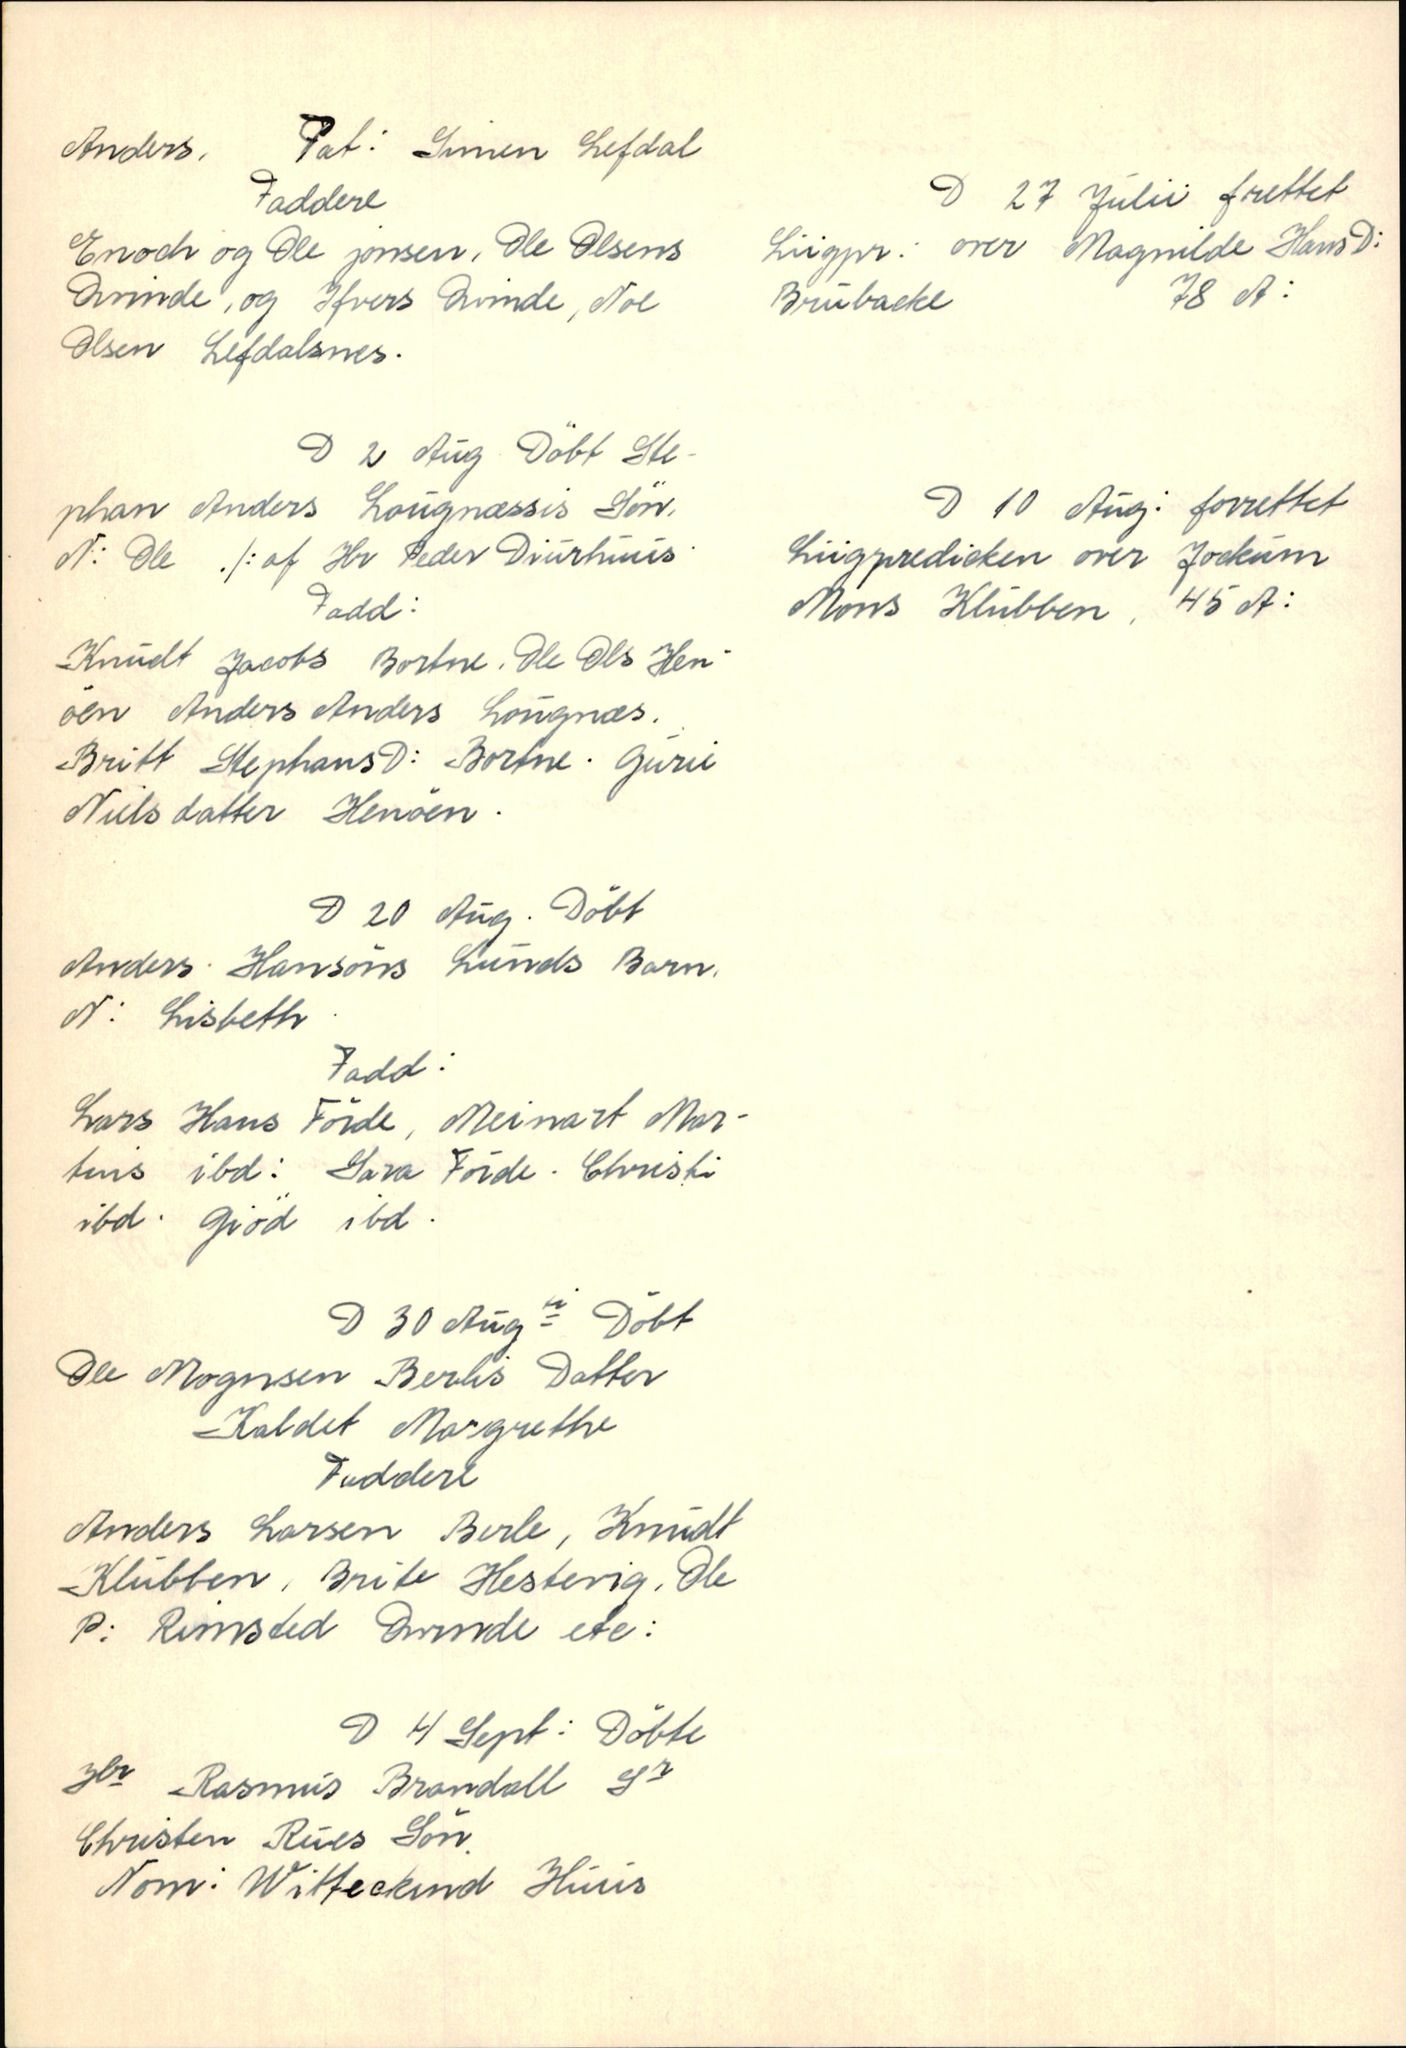 Anders. Pat: Simen Lefdal
Faddere
Enoch og Ole jonsen, Ole Olsens
Qvinde, og Ifvers Qvinde, Noe
Olsen Lefdalsnes.
D 2 Aug Döbt Ste-
phan Anders Lougnæssis Sön.
N: Ole ./: af Hr Peder Diurhuus.
Fadd:
Knudt Jacobs Bortne. Ole Ols Hen-
öen Anders Anders Lougnæs.
Britt StephansD: Bortne. Gurie
Nielsdatter Henöen.
D 20 Aug. Döbt
Anders Hansöns Lunds Barn.
N: Lisbeth
Fadd:
Lars Hans Förde, Meinart Mar-
tins ibd: Sara Förde. Christi
ibd. Giöd ibd.
D 30 Aug ti Döbt
Ole Mognsen Berlis Datter
Kaldet Margrethe
Faddere
Anders Larsen Berle, Knudt
Klubben, Brite Hestevig, Ole
P: Rimsted Qvinde etc:
D 4 Sept: Döbte
Hr Rasmus Brandall Sr
Christen Rues Sön.
Nom: Witteckind Huus
D 27 Julii frettet
Liigpr: over Magnilde HansD:
Brubacke 78 A:
D 10 Aug: forrettet
Liigpredicken over Jockum
Mons Klubben, 45 A: